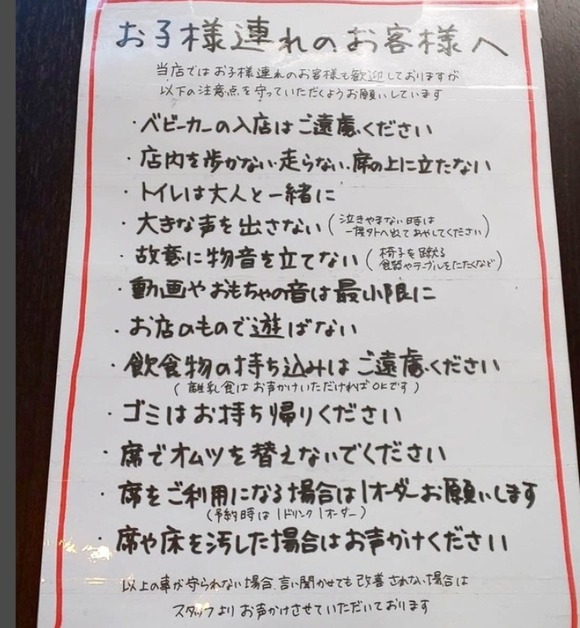 お子様連れのお客様へ
当店ではお子様連れのお客様も歓迎しておりますが
以下の注意点を守っていただくようお願いしています
・ベビーカーの入店はご遠慮ください
・店内を歩かない・走らない・席の上に立たない
・トイレは大人と一緒に
・大きな声を出さない(泣きやまない時は
一度外へ出てあやしてください)
・故意に物音を立てない(椅子を蹴る
食器やテーブルをたたくなど)
・動画やおもちゃの音は最小限に
・お店のもので遊ばない
・飲食物の持ち込みはご遠慮ください
(離乳食はお声かけいただければOKです)
・ゴミはお持ち帰りください
・席でオムツを替えないでください
・席をご利用になる場合は1オーダーお願いします
(予約時は1ドリンク1オーダー)
・席や床を汚した場合はお声かけください
以上の事が守られない場合、言い聞かせても改善されない場合は
スタッフよりお声かけさせていただいております